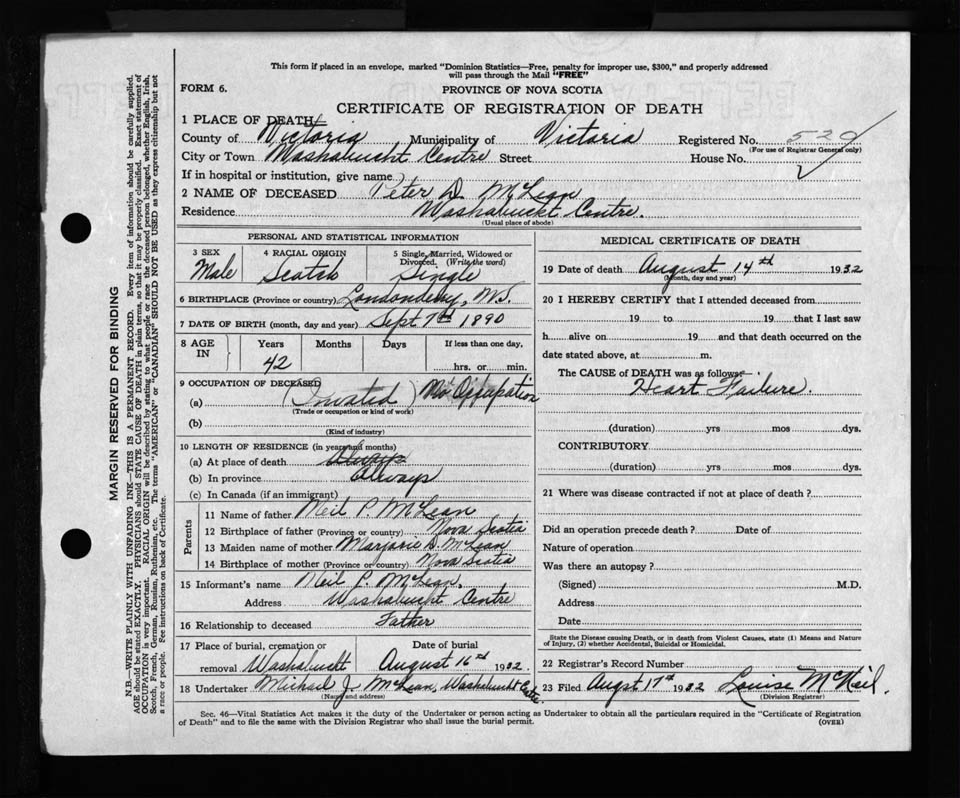 This form if placed in an envelope, marked "Dominion Statistics—Free, penalty for improper use, $300," and properly addressed
will pass through the Mail "FREE"
FORM 6.
PROVINCE OF NOVA SCOTIA
CERTIFICATE OF REGISTRATION OF DEATH
1 PLACE OF DEATH
County of Victoria Municipality of Victoria Registered No. 529
(For use of Registrar General only)
City or Town Washabuckt Centre Street House No.
If in hospital or institution, give name
2 NAME OF DECEASED Peter D. McLean
Residence Washabuckt Centre.
(Usual place of abode)
PERSONAL AND STATISTICAL INFORMATION
3 SEX Male
4 RACIAL ORIGIN Scotch
5 Single, Married, Widowed or Divorced, (Write the word) Single
6 BIRTHPLACE (Province or country) Londonderry, N.S.
7 DATE OF BIRTH (month, day and year) Sept 7th 1890
8 AGE IN Years 42 Months Days If less than one day, hrs. or min.
9 OCCUPATION OF DECEASED
(a) No Occupation
(Trade or occupation or kind of work)
(b)
(Kind of industry)
10 LENGTH OF RESIDENCE (in years and months)
(a) At place of death Always
(b) In province Always
(c) In Canada (if an immigrant)
Parents
11 Name of father Neil P. McLean
12 Birthplace of father (Province or country) Nova Scotia
13 Maiden name of mother Marjorie D. McLean
14 Birthplace of mother (Province or country) Nova Scotia
15 Informant's name Neil P. McLean,
Address Washabuckt Centre
16 Relationship to deceased Father
17 Place of burial, cremation or removal Washabuckt
Date of burial August 16th 1932.
18 Undertaker Michael J. McLean, Washabuckt Centre.
(Name and address)
MEDICAL CERTIFICATE OF DEATH
19 Date of death August 14th 1932
(Month, day and year)
20 I HEREBY CERTIFY that I attended deceased from
19 to 19 that I last saw
h alive on 19 and that death occurred on the
date stated above, at m.
The CAUSE of DEATH was as follows:
Heart Failure.
(duration) yrs mos dys.
CONTRIBUTORY
(duration) yrs mos dys.
21 Where was disease contracted if not at place of death?
Did an operation precede death? Date of
Nature of operation
Was there an autopsy?
(Signed) M.D.
Address
Date
State the Disease causing Death, or in death from Violent Causes, state (1) Means and Nature
of Injury, (2) whether Accidental, Suicidal or Homicidal.
22 Registrar's Record Number
23 Filed August 17th 1932 Louise McNeil.
(Division Registrar)
Sec. 46—Vital Statistics Act makes it the duty of the Undertaker or person acting as Undertaker to obtain all the particulars required in the "Certificate of Registration
of Death" and to file the same with the Division Registrar who shall issue the burial permit.
(OVER)
MARGIN RESERVED FOR BINDING
N.B.—WRITE PLAINLY WITH UNFADING INK—THIS IS A PERMANENT RECORD. Every item of information should be carefully supplied.
AGE should be stated EXACTLY. PHYSICIANS should STATE CAUSE OF DEATH in plain terms, so that it may be properly classified. Exact statement of
OCCUPATION is very important. RACIAL ORIGIN will be described by stating to what people or race the deceased person belonged, whether English, Irish,
Scotch, French, German, Russian, Ruthenian, etc. The terms "AMERICAN" or "CANADIAN" SHOULD NOT BE USED as they express citizenship but not
a race or people. Fee instructions on back of Certificate.